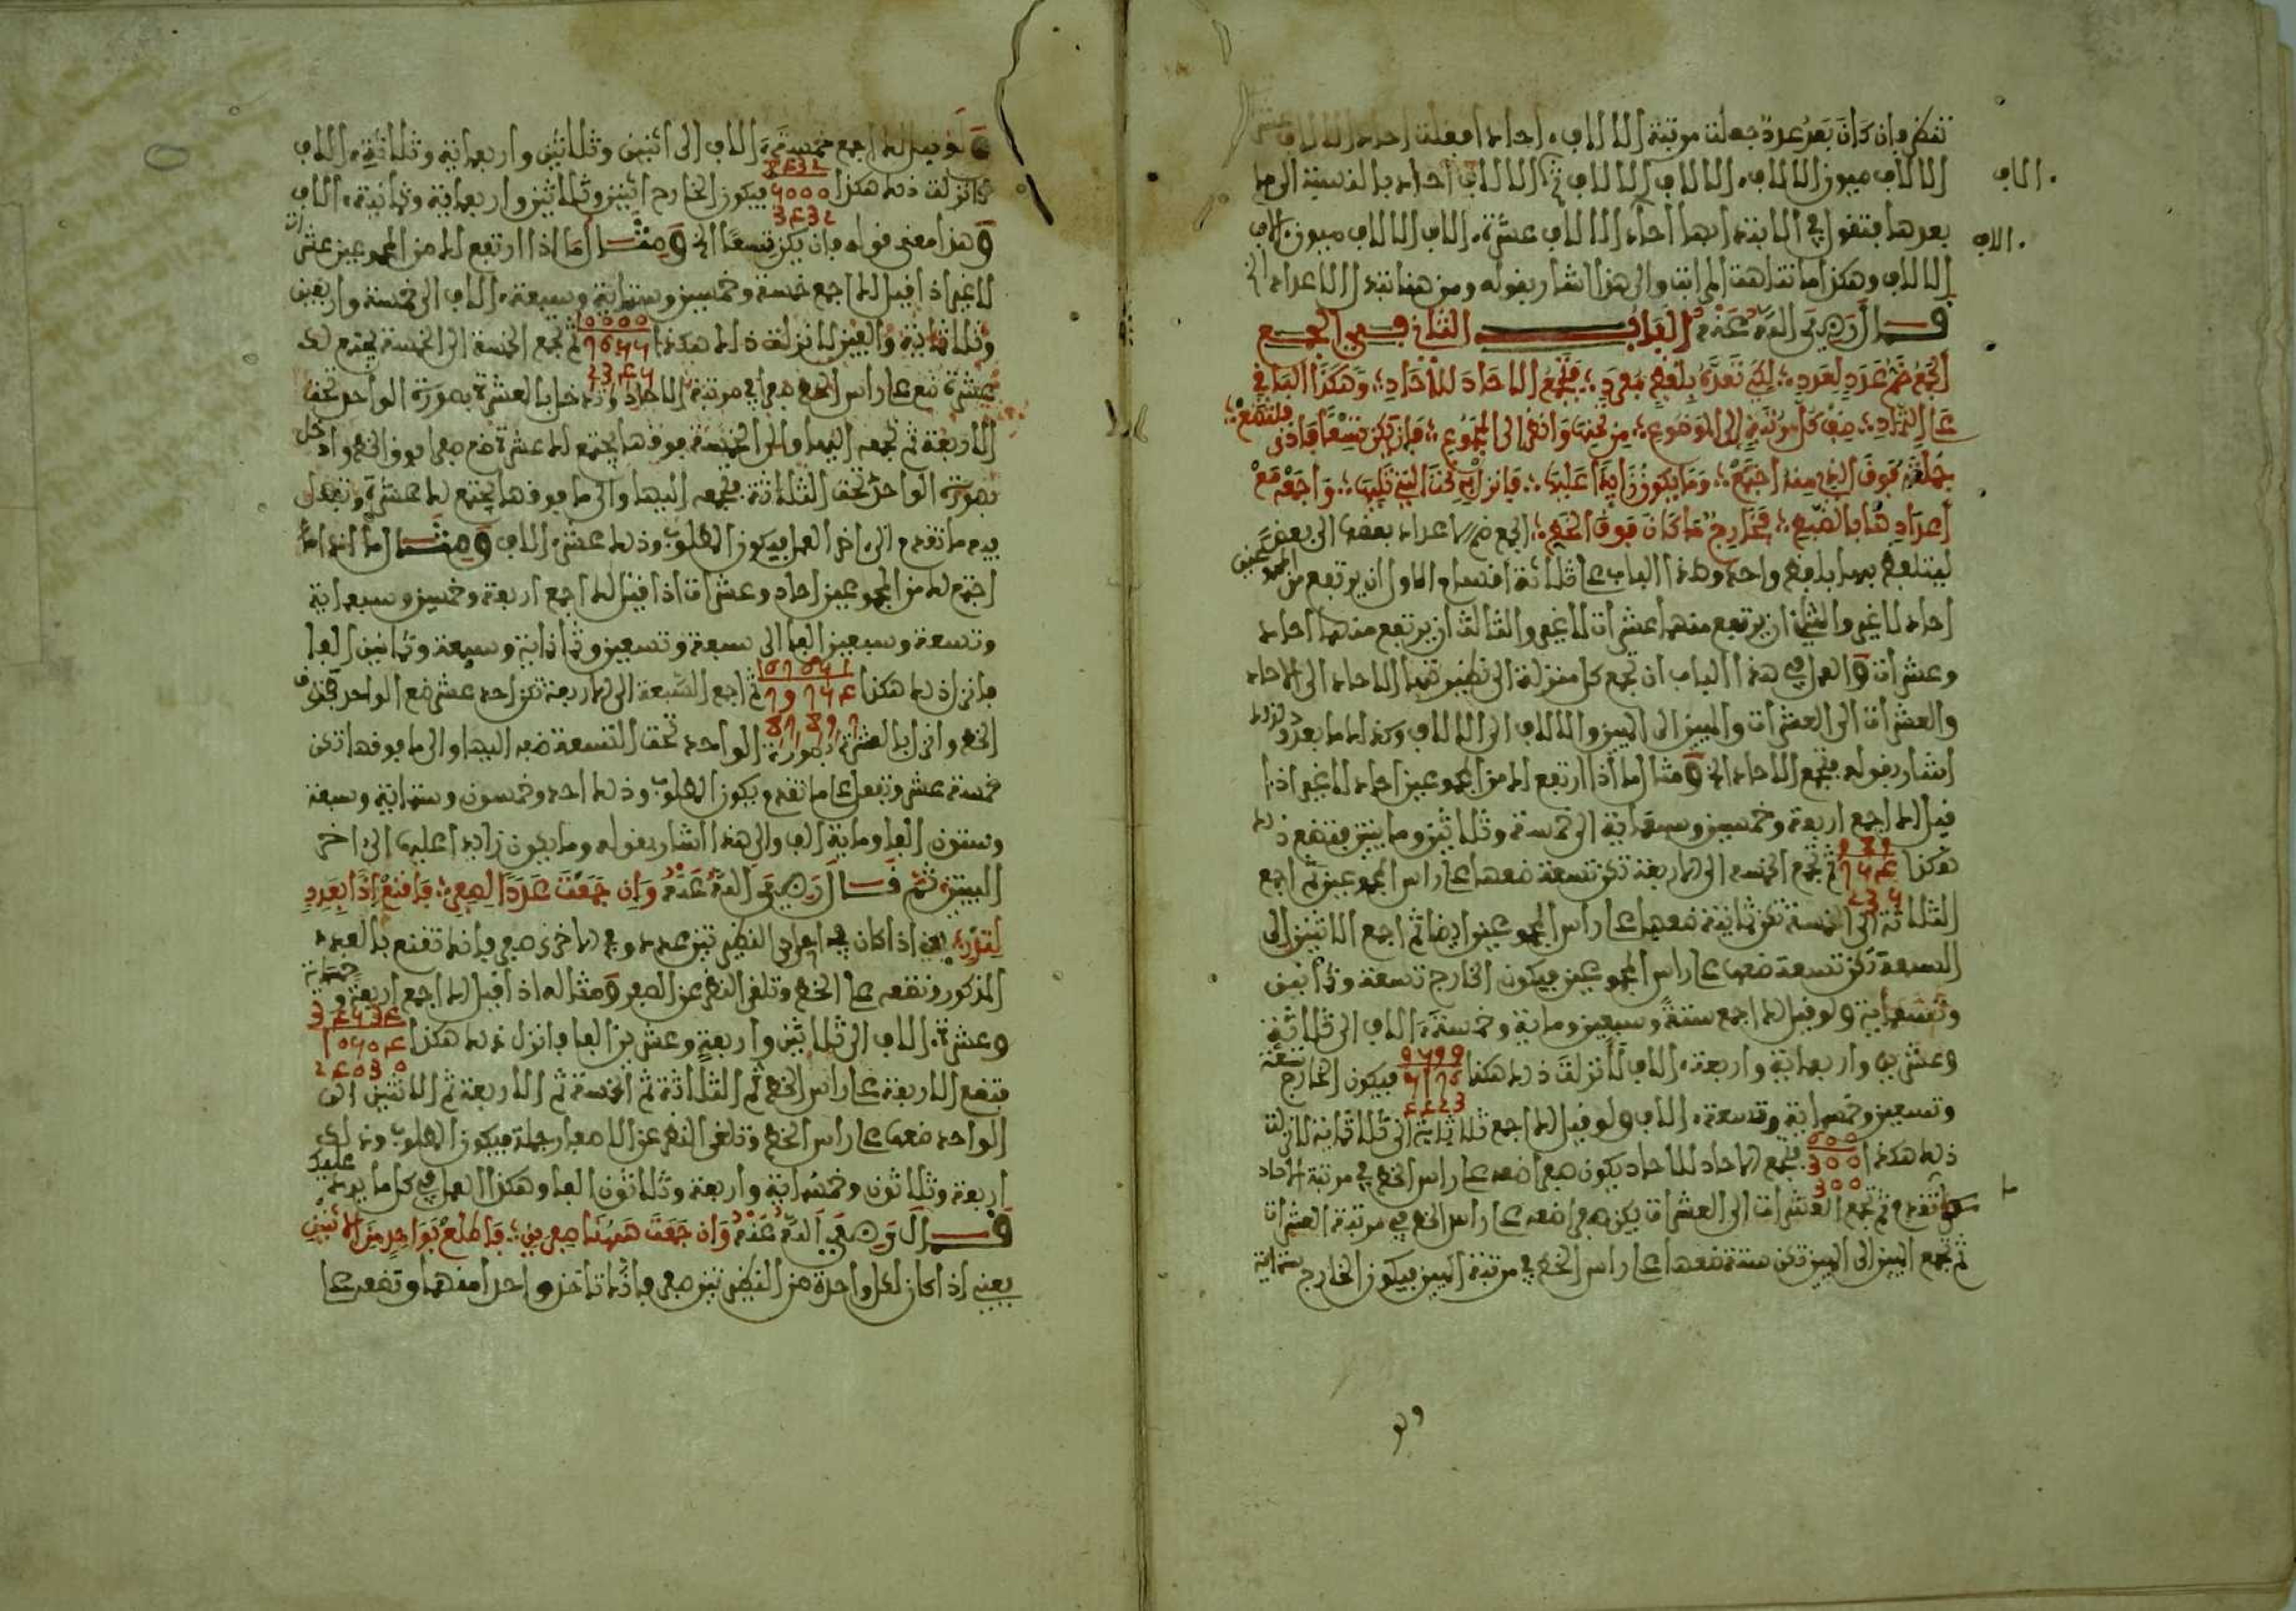 تنظر فإن كان بعد عدد جعلت مرتبة الالاف احاد افقلت احاد الالاف
الالاف ميوز الالاف الالاف الالاف ثم الالاف احاد بالنسبة الى ما
.الاف
بعدها فتقول في الثانية انها احاد الالاف عشرة الاف الالاف ميون الاف
.الاف
الالاف وهكذا ما تناهت المراتب والى هذا اشار بقوله ومن هنا تبتدا الاعداد الخ
قال رضي الله عنه الباب الثاني في الجمع
الجمع ضم عدد لعدد لكي تعده بلفظ مفرد فتجمع الاحاد للاحاد وهكذا الباقي
على التماد صف كل مرتبة الى الموضوع من تحتها وانظر الى المجموع فإن يكن تسعا فادنى فلتضع
جملته فوق الذي منه اجتمع وما يكون زايدا عليها فانزل به تحت التي تليها واجمعه مع
اعدادها بالضبط فخارج ما كان فوق الخط الجمع ضم الاعداد بعضها الى بعض
ليتلفظ بها بلفظ واحد وهذا الباب على ثلاثة اقسام الاول ان يرتفع من المجموعين
احاد لا غير والثاني ان يرتفع منهما عشرات لا غير والثالث ان يرتفع منهما احاد
وعشرات والعمل في هذا الباب ان تجمع كل منزلة الى نظيرتها الاحاد الى الاحاد
والعشرات الى العشرات والميين الى الميين والالاف الى الالاف وكذا ما بعد ذلك
اشار بقوله فتجمع الاحاد الخ ومثال ما اذا ارتفع لك من المجموعين احاد لا غير اذا
قيل لك اجمع اربعة وخمسين وسبعماية الى خمسة وثلاثين ومايتين فتضع ذلك
هكذا 989 754 235 ثم تجمع الخمسة الى الاربعة تكن تسعة ضعها على راس المجموعين ثم اجمع
الثلاثة الى الخمسة تكن ثمانية ضعها على راس المجموعين ايضا ثم اجمع الاثنين الى
السبعة تكن تسعة ضعها على راس المجموعين فيكون الخارج تسعة وثمانين
وتسعماية ولو قيل لك اجمع ستة وسبعين وماية وخمسة الاف الى ثلاثة
وعشرين واربعماية واربعة الاف لانزلت ذلك هكذا 9599 5176 4423 فيكون الخارج تسعة
وتسعين وخمسماية وتسعة الاف ولو قيل لك اجمع ثلاثماية الى ثلاثماية لانزلت
ذلك هكذا 600 300 300 فتجمع الاحاد للاحاد يكون صفرا ضعه على راس الخط في مرتبة الاحاد
كما تقدم ثم تجمع العشرات الى العشرات يكن صفرا ضعه على راس الخط في مرتبة العشرات
ثم تجمع الميين الى الميين تكن ستة ضعها على راس الخط في مرتبة الميين فيكون الخارج ستماية
ولو
ولو قيل لك اجمع خمسة الاف الى اثنين وثلاثين واربعماية وثلاثة الاف
لانزلت ذلك هكذا 8432 5000 3432 فيكون الخارج اثنين وثلاثين واربعماية وثمانية الاف
وهذا معنى قوله فإن يكن تسعا الخ ومثال ما اذا ارتفع لك من المجموعين عشرات
لا غير اذا قيل لك اجمع خمسة وخمسين وستماية وسبعة الاف الى خمسة واربعين
وثلاثماية والفين لانزلت ذلك هكذا 10000 7655 2345 ثم تجمع الخمسة الى الخمسة يجتمع لك
عشرة ضع على راس الخط صفرا في مرتبة الاحاد وتدخل بالعشرة بصورة الواحد تحت
الاربعة ثم تجمعه اليها والى الخمسة فوقها يجتمع لك عشرة ضع صفرا فوق الخط وادخل
بصورة الواحد تحت الثلاثة فتجمعه اليها والى ما فوقها يجتمع لك عشرة وتفعل
فيه ما تقدم الى اخر العمل فيكون المطلوب وذلك عشرة الاف ومثال ما اذا
اجتمع لك من المجموعين احاد وعشرات اذا قيل لك اجمع اربعة وخمسين وسبعماية
وتسعة وسبعين الفا الى سبعة وتسعين وثمانماية وسبعة وثمانين الفا
فانزل ذلك هكذا 167651 79754 87897 ثم اجمع السبعة الى الاربعة تكن احد عشر ضع الواحد فوق
الخط وانزل بالعشرة بصورة الواحد تحت التسعة ضمه اليها والى ما فوقها تكن
خمسة عشر وتفعل على ما تقدم ويكون المطلوب وذلك احد وخمسون وستماية وسبعة
وستون الفا وماية الف والى هذا اشار بقوله وما يكون زايدا عليها الى اخر
البيتين ثم قال رضي الله عنه وان جمعت عددا لصفر فاقنع اذا بعدد
لتدر يعني اذا كان في احدى النظيرتين عدد وفي الاخرى صفر فإنك تقنع بالعدد
المذكور وتضعه على الخط وتلغى النظر عن الصفر ومثاله اذا قيل لك اجمع اربعة وخمسماية
وعشرة الاف الى ثلاثين واربعة وعشرين الفا فانزل ذلك هكذا 34534 10504 24030
فتضع الاربعة على راس الخط ثم الثلاثة ثم الخمسة ثم الاربعة ثم الاثنين الى
الواحد ضعها على راس الخط وتلغى النظر عن الاصفار جملة فيكون المطلوب وذلك
اربعة وثلاثون وخمسماية واربعة وثلاثون الفا وهكذا العمل في كل ما يرد عليك
قال رضي الله عنه وان جمعت هاهنا صفرين فاطلع بواحد من الاثنين
يعني اذا كان لكل واحدة من النظيرتين صفر فإنك تاخذ واحدا منهما وتضعه على